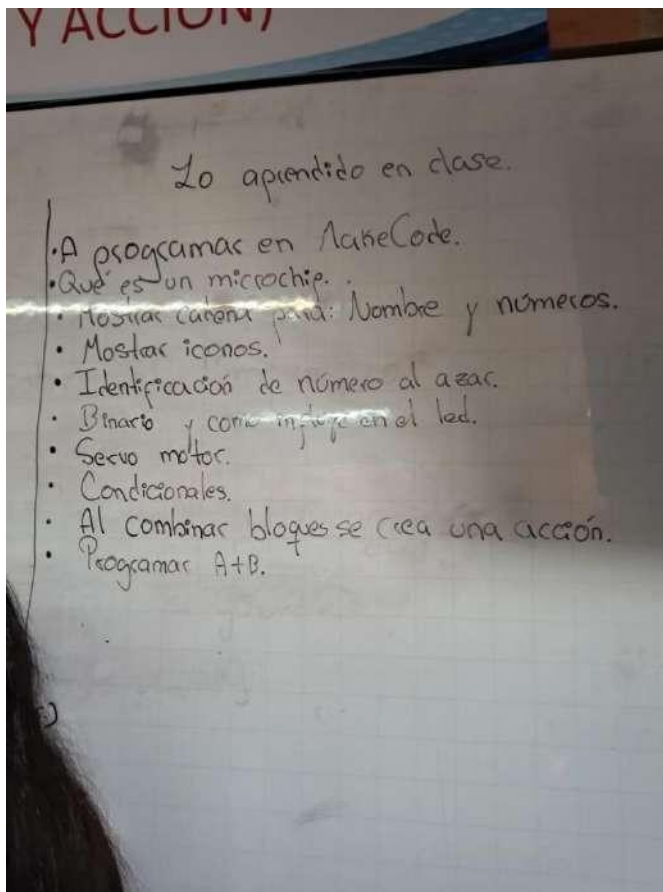 Y ACCIÓN)
Lo aprendido en clase.
• A programar en MakeCode.
• Qué es un microchip.
• Mostrar cadena para: Nombre y números.
• Mostrar iconos.
• Identificación de número al azar.
• Binario y como influye en el led.
• Servo motor.
• Condicionales.
• Al combinar bloques se crea una acción.
• Programar A+B.